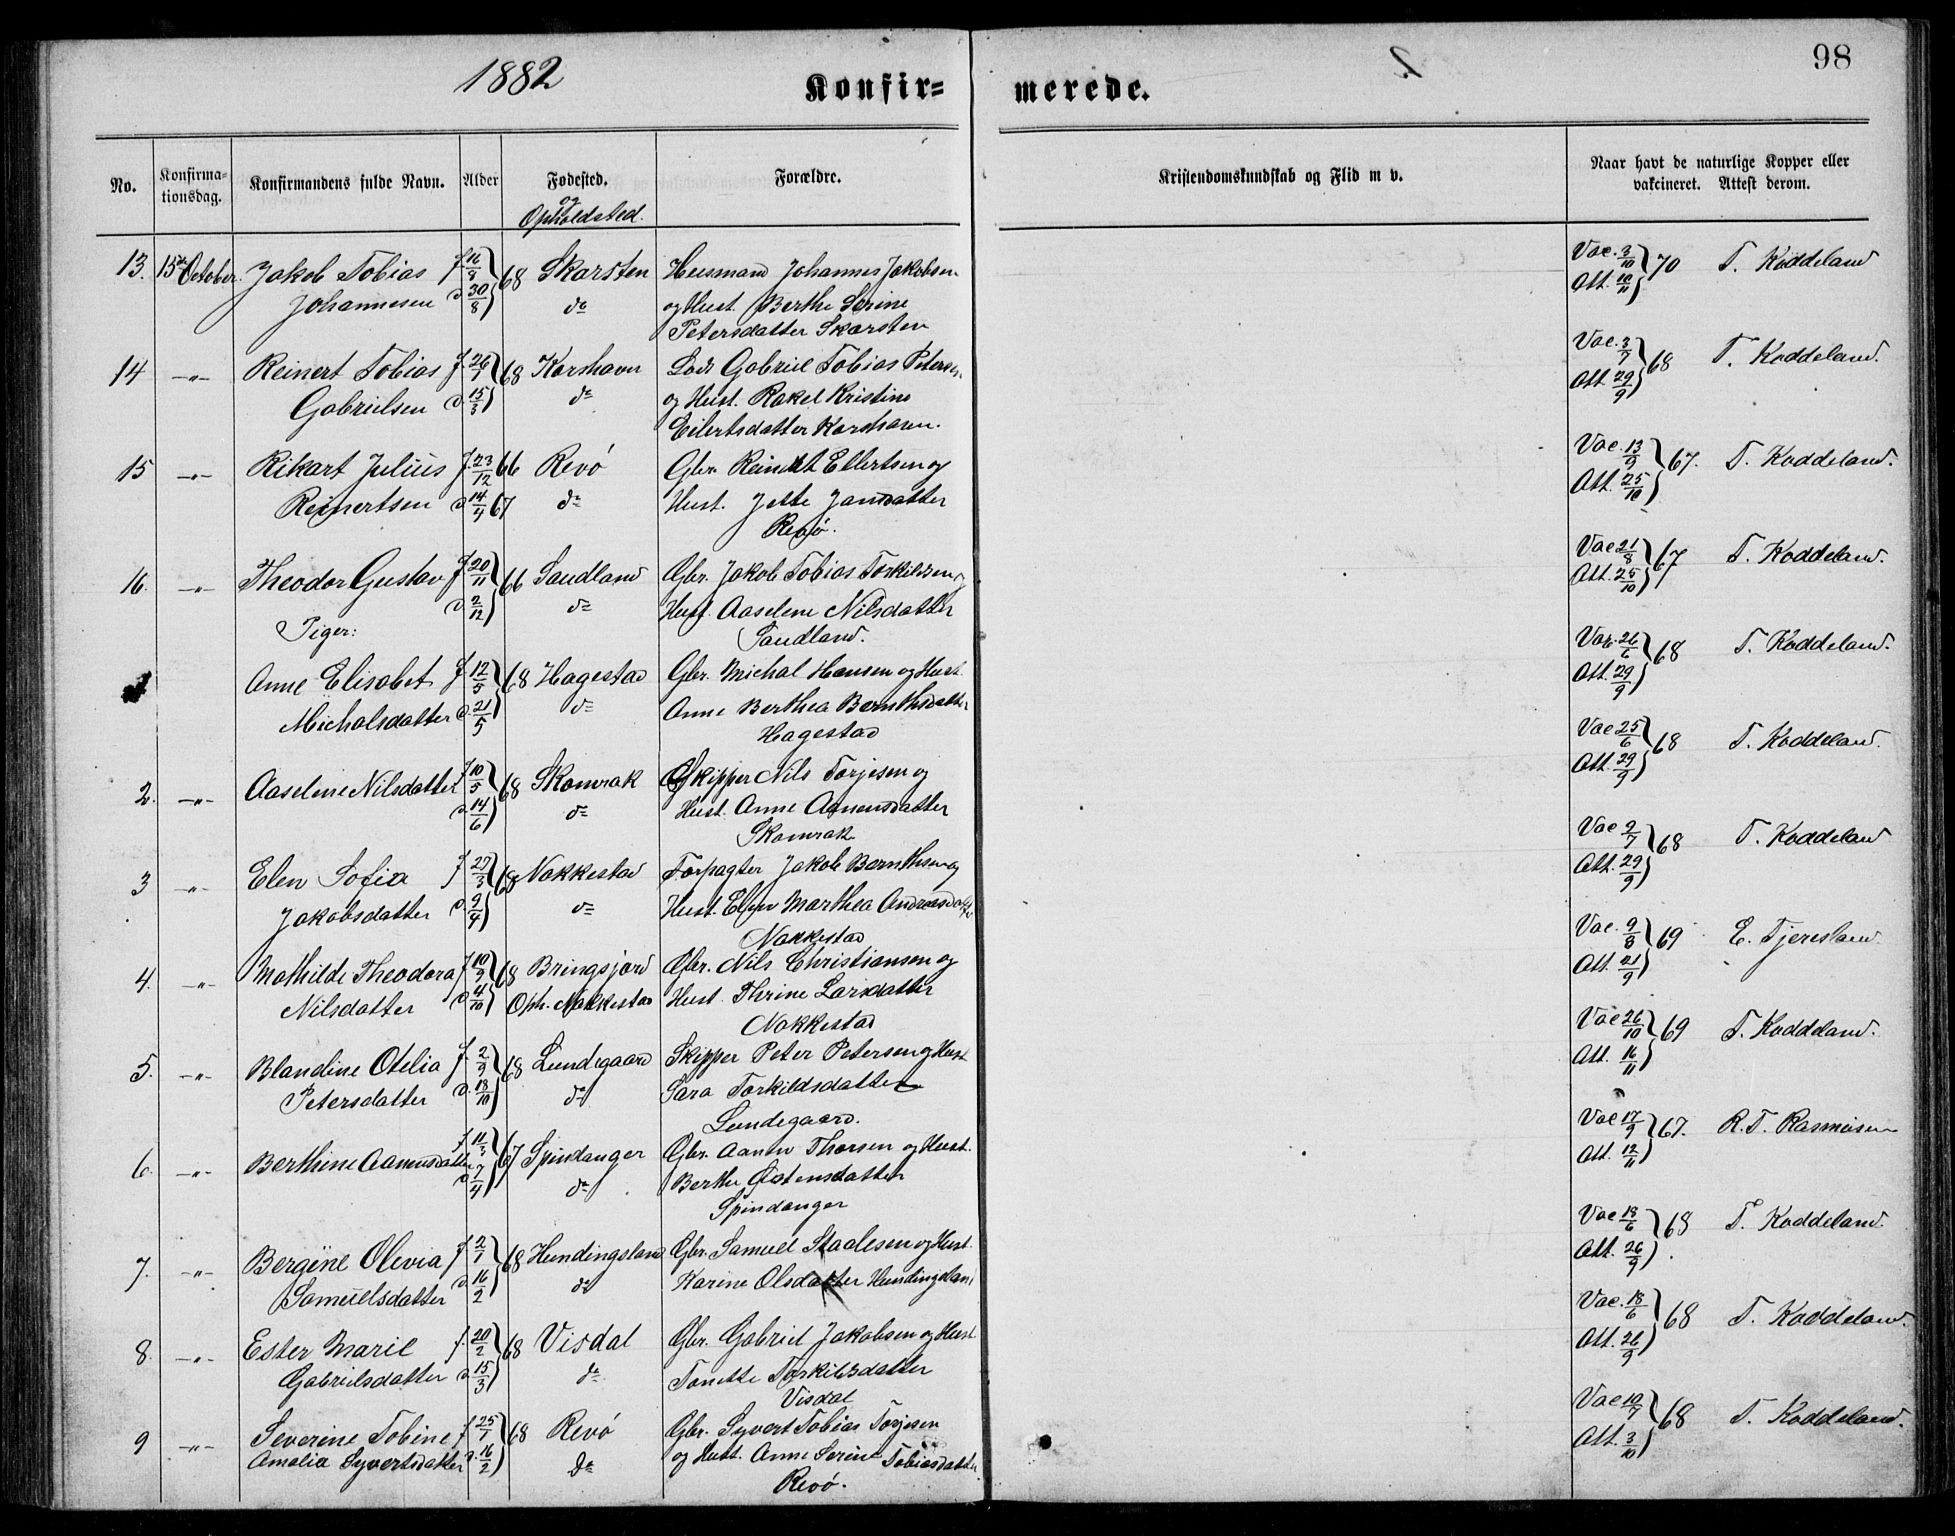 1882
98
Konfir= merede.
No. Konfirma- tionsdag. Konfirmandens fulde Navn. Alder Fødested. Forældre. Kristendomskundskab og Flid m v. Naar havt de naturlige Kopper eller vakcineret. Attest derom.
og Opholdsted.
13. 15de October. Jakob Tobias f. 16/8 68 Skarsten Husmand Johannes Jakobsen Vac. 3/10 70 T. Koddeland
Johannesen d. 30/8 do og Hust. Berthe Serine Att. 10/11
Petersdatter Skarsten
14 -"- Reinert Tobias f. 26/1 68 Korshavn Lods Gabriel Tobias Petersen Vac. 3/7 68 T. Koddeland.
Gabrielsen d. 15/3 do og Hust. Rakel Kristine Att. 29/9
Eilertsdatter Korshavn.
15 -"- Rikart Julius f. 23/12 66 Revø Gbr. Reinert Ellertsen og Vac. 13/9 67. T. Koddeland.
Reinertsen d. 14/4 67 do Hust. Jette Jansdatter Att. 25/10
Revø.
16. -"- Theodor Gustav f. 20/11 66 Sandland Gbr. Jakob Tobias Torkildsen og Vac 21/8 67 T. Koddeland.
d. 2/12 do Hust. Aaselene Nilsdatter Att. 25/10
Piger: Sandland.
Anne Elisabet f. 12/5 68 Hagestad Gbr. Michal Hansen og Hust. Vac. 26/6 68 T. Koddeland.
Michalsdatter d. 21/5 do Anne Berthea Bernthsdatter Att. 29/9
Hagestad
2. -"- Aaselene Nilsdatter f. 10/5 68 Skomrak Skipper Nils Torjesen og Vac 25/6 68 T. Koddeland.
d. 14/6 do Hust. Anne Aanensdatter Att. 29/9
Skomrak
3 -"- Elen Sofia f. 27/3 68 Nakkestad Forpagter Jakob Bernthsen og Vac 2/7 68 T. Koddeland
Jakobsdatter d. 9/4 do Hust. Elen Marthea Andreasdatter Att. 29/9
Nakkestad
4. -"- Mathilde Theodora f. 10/9 68 Bringsjord Gbr. Nils Christiansen og Vac. 9/8 69 E. Tjersland.
Nilsdatter d. 4/10 Oph. Nakkestad Hust. Thrine Larsdatter Att. 21/9
Nakkestad
5. -"- Blandine Otelia f. 2/9 68 Lundegaard Skipper Peter Petersen og Hust Vac 26/10 69 T. Koddeland.
Petersdatter d. 18/10 do Sara Torkildsdatter Att. 16/11
Lundegaard.
6. -"- Berthine Aanensdatter f. 11/3 67 Spindanger Gbr. Aanen Thorsen og Hust. Vac 17/9 67. R. T. Rasmusen
d. 7/4 do Berthe Østensdatter Att. 12/11
Spindanger
7. -"- Bergine Olevia f. 2/1 68 Hundingsland Gbr. Samuel Staalesen og Hust. Vac 18/6 68 T. Koddeland.
Samuelsdatter d. 16/2 do Karine Olsdatter Hundingsland Att. 26/9
8. -"- Ester Marie f. 20/2 68 Visdal Gbr. Gabriel Jakobsen og Hust Vac. 18/6 68 T. Koddeland.
Gabrielsdatter d. 15/3 do Tonette Torkildsdatter Att. 26/9
Visdal
9 -"- Severine Tobine f. 25/1 68 Revø Gbr. Syvert Tobias Torjesen Vac 10/7 68 T. Koddeland.
Amalia Syvertsdatter d. 16/2 do og Hust. Anne Serine Tobiasdatter Att. 3/10
Revø.